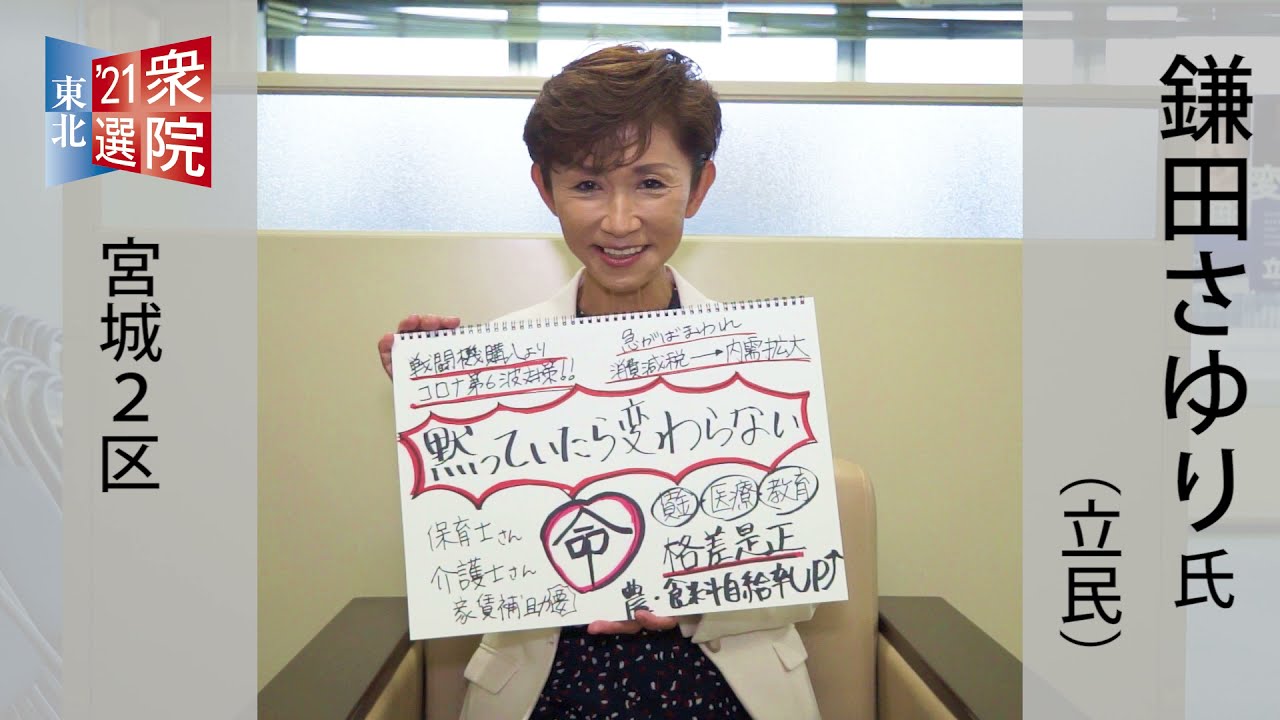 衆院
'21選
東北
宮城2区
鎌田さゆり氏
（立民）
戦闘機購入より
コロナ第6波対策!!
急がばまわれ
消費減税→内需拡大
黙っていたら変わらない
保育士さん
介護士さん
家賃補助
命
賃金・医療・教育
格差是正
農・食料自給率UP↑